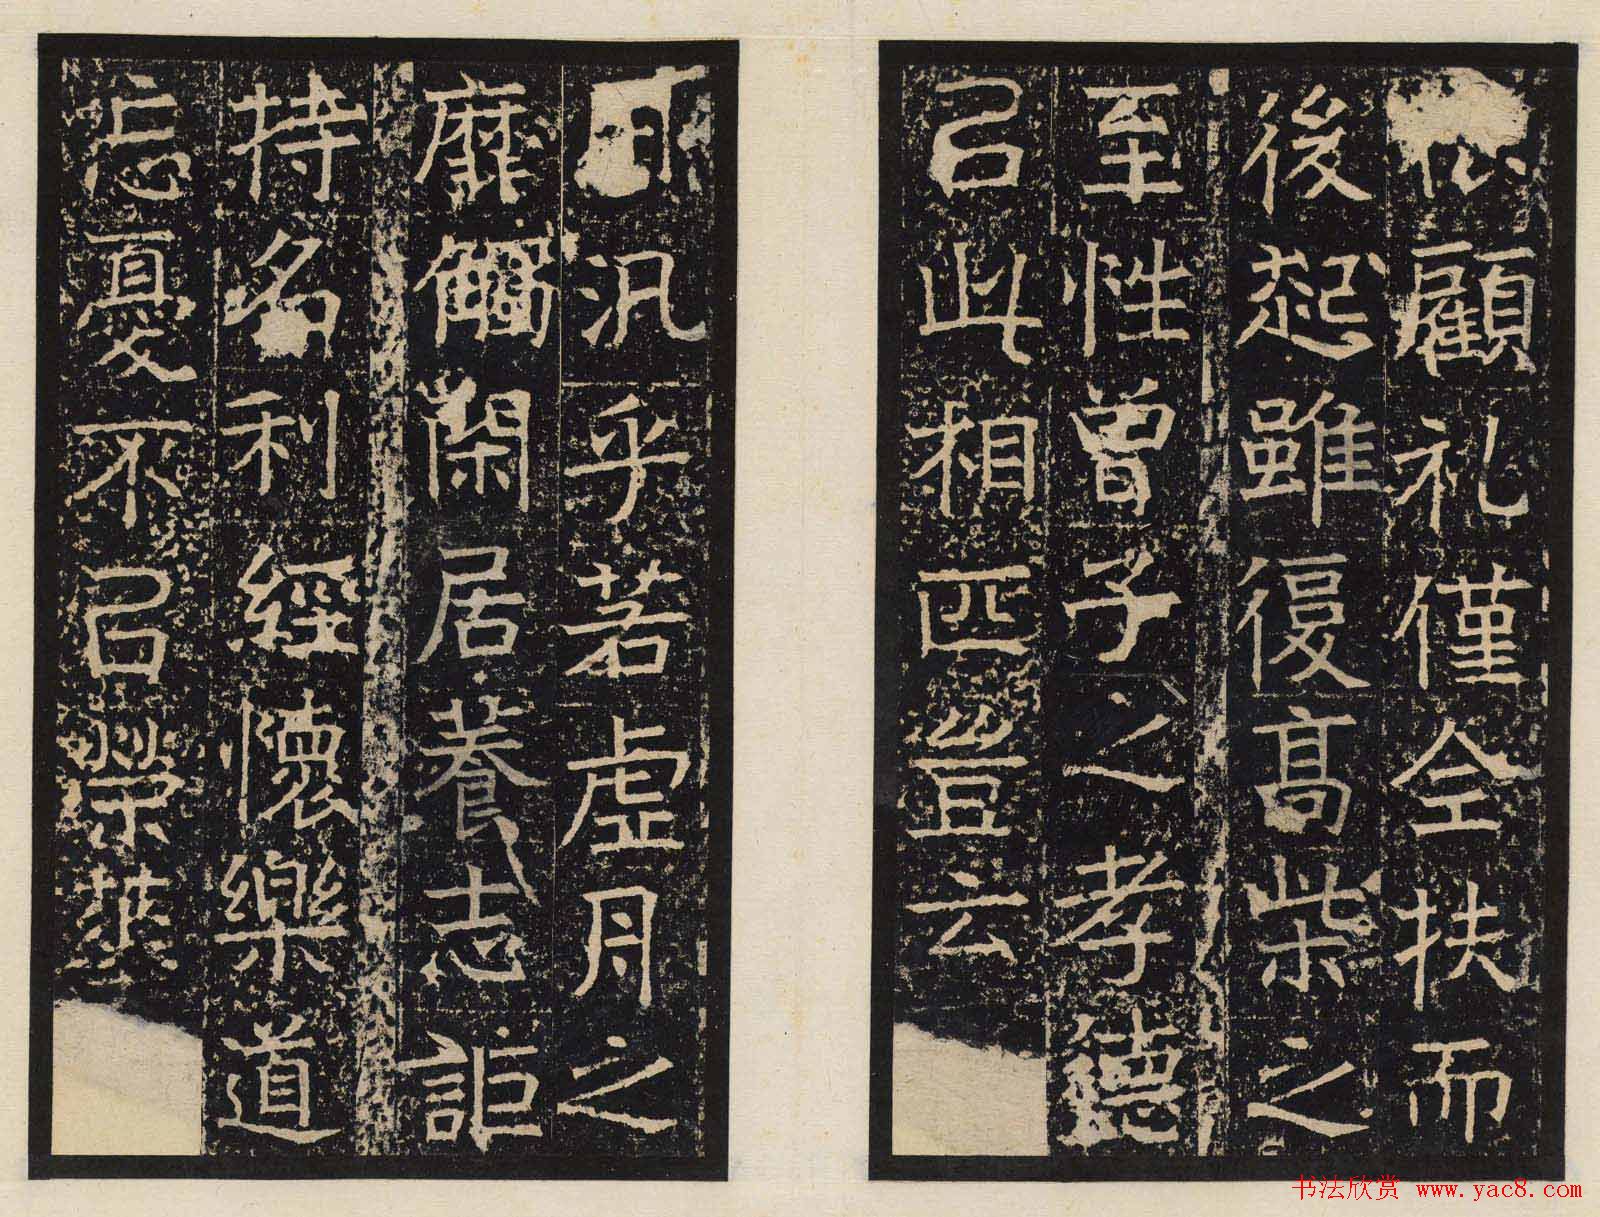 顧礼僅全扶而
後起雖復高柴之
至性曾子之孝德
㠯此相匹豈云
汎乎若虛舟之
靡觸閑居養志詎
持名利經懷樂道
忘憂不㠯榮
书法欣赏 www.yac8.com